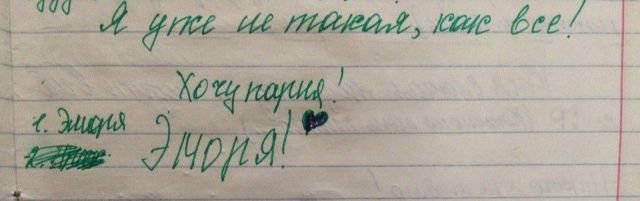 Я уже не такая, как все!
Хочу парня!
1. Эмаря
2.
Эморя!